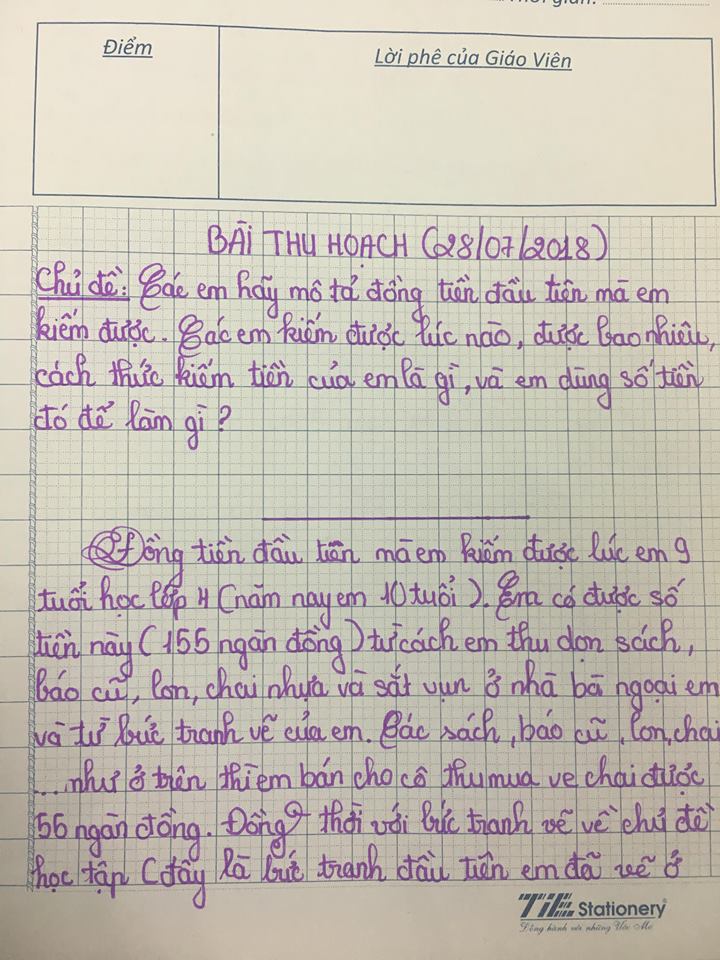 Điểm
Lời phê của Giáo Viên
BÀI THU HOẠCH (28/07/2018)
Chủ đề: Các em hãy mô tả đồng tiền đầu tiên mà em
kiếm được. Các em kiếm được lúc nào, được bao nhiêu,
cách thức kiếm tiền của em là gì, và em dùng số tiền
đó để làm gì?
Đồng tiền đầu tiên mà em kiếm được lúc em 9
tuổi học lớp 4 (năm nay em 10 tuổi). Em có được số
tiền này (155 ngàn đồng) từ cách em thu dọn sách,
báo cũ, lon, chai nhựa và sắt vụn ở nhà bà ngoại em
và từ bức tranh vẽ của em. Các sách, báo cũ, lon, chai
... như ở trên thì em bán cho cô thu mua ve chai được
55 ngàn đồng. Đồng thời với bức tranh vẽ về chủ đề
học tập (đây là bức tranh đầu tiên em đã vẽ ở
TiE Stationery
Đồng hành với những Ước Mơ